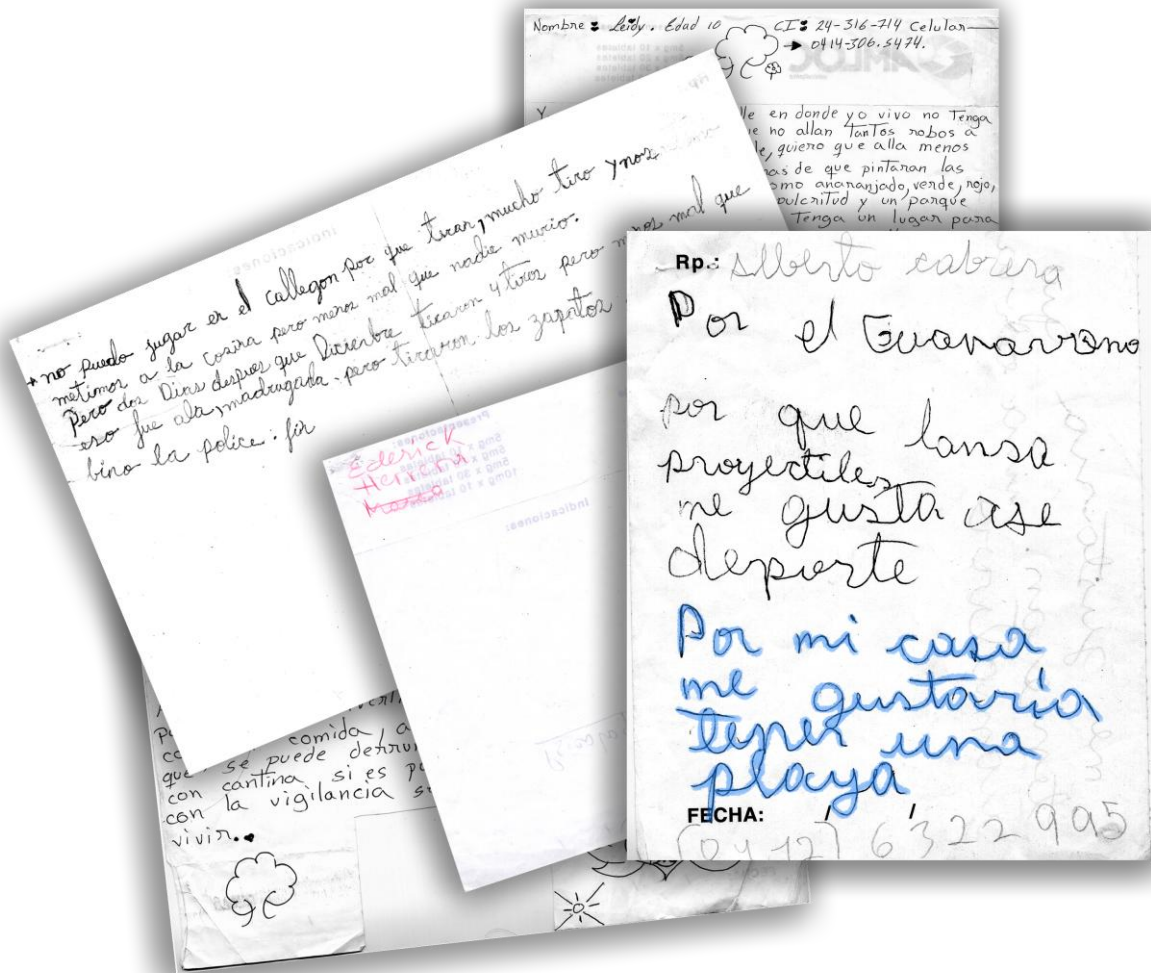 Nombre : Leidy. Edad 10 CI: 24-316-714 Celular
→ 0414-306.5474.
AMLOC
Y
lle en donde yo vivo no Tenga
e no allan TanTos robos a
de, quiero que alla menos
as de que pintaran las
omo anaranjado, verde, rojo,
pulcritud y un parque
Tenga un lugar para
Indicaciones
+ no puedo jugar en el callegon por que tiran, mucho tiro y nos
metimos a la cosina pero menos mal que nadie murio.
Pero dos Dias despues que Diciembre tiraron 4 tiros pero menos mal que
eso fue ala madrugada. pero tiraron los zapatos
bino la police. fin
Ederick
Presentaciones:
5mg x 10 tabletas
10mg x 10 tabletas
Indicaciones:
Rp.: Alberto cabrera
Por el Guanarismo
por que lansa
proyectiles
me gusta ase
deporte
Por mi casa
me gustaria
tener una
playa
FECHA: / /
(0412) 6322995
comida, a
que se puede derru
con cantina si es p
con la vigilancia s
vivir..